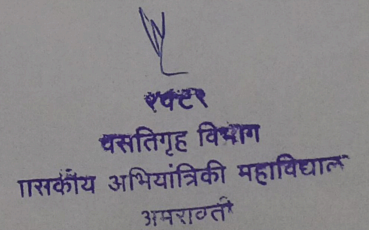 रेक्टर
वसतिगृह विभाग
शासकीय अभियांत्रिकी महाविद्यालय
अमरावती